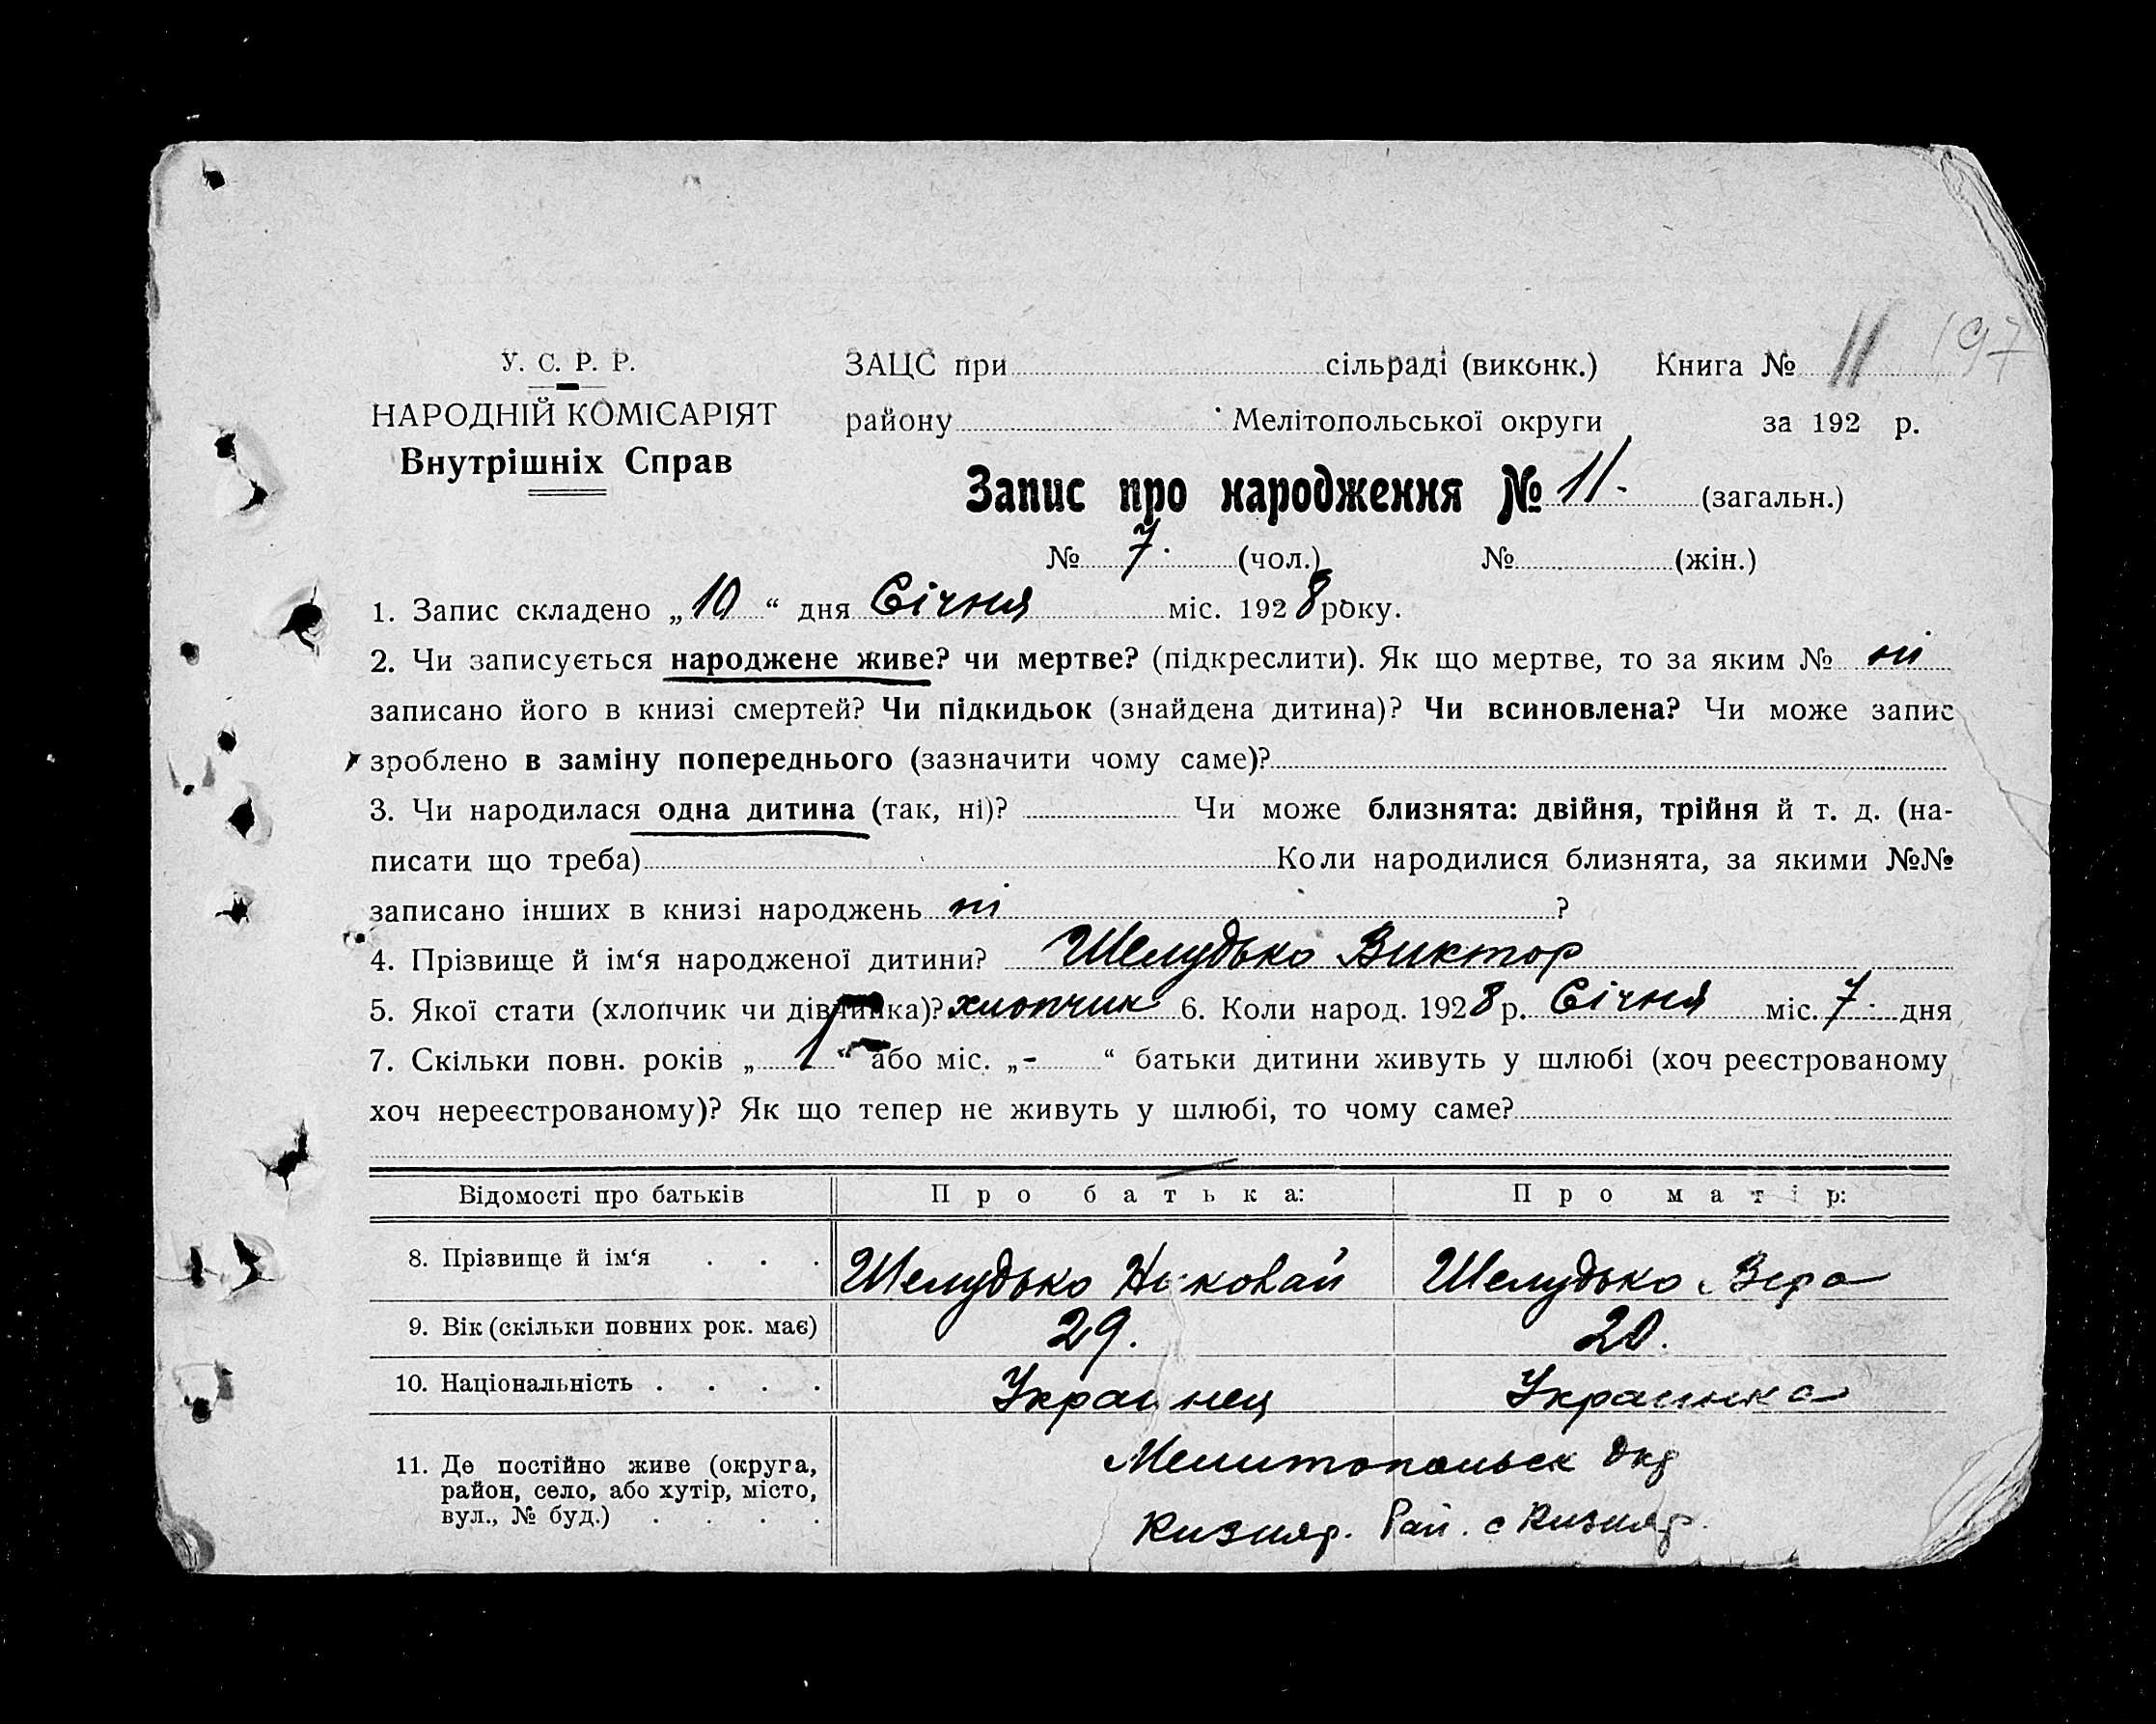 У. С. Р. Р.
НАРОДНІЙ КОМІСАРІЯТ
Внутрішніх Справ
ЗАЦС при сільраді (виконк.) Книга № 11 197
району Мелітопольської округи за 192 р.
Запис про народження № 11. (загальн.)
№ 7. (чол.) № (жін.)
1. Запис складено „10“ дня Січня міс. 1928 року.
2. Чи записується народжене живе? чи мертве? (підкреслити). Як що мертве, то за яким № ні
записано його в книзі смертей? Чи підкидьок (знайдена дитина)? Чи всиновлена? Чи може запис
зроблено в заміну попереднього (зазначити чому саме)?
3. Чи народилася одна дитина (так, ні)? Чи може близнята: двійня, трійня й т. д. (на-
писати що треба) Коли народилися близнята, за якими №№
записано інших в книзі народжень ні ?
4. Прізвище й ім‘я народженої дитини? Шелудько Виктор
5. Якої стати (хлопчик чи дівчинка)? хлопчик 6. Коли народ. 1928 р. Січня міс. 7. дня
7. Скільки повн. років „1“ або міс. „-“ батьки дитини живуть у шлюбі (хоч реєстрованому
хоч нереєстрованому)? Як що тепер не живуть у шлюбі, то чому саме?
Відомості про батьків Про батька: Про матір:
8. Прізвище й ім‘я . . . Шелудько Николай Шелудько Вера
9. Вік (скільки повних рок. має) 29. 20.
10. Національність . . . . Украинец Украинка
11. Де постійно живе (округа,
район, село, або хутір, місто,
вул., № буд.) . . . .
Мелитопольск окр
Кизияр. Рай. с Кизияр.